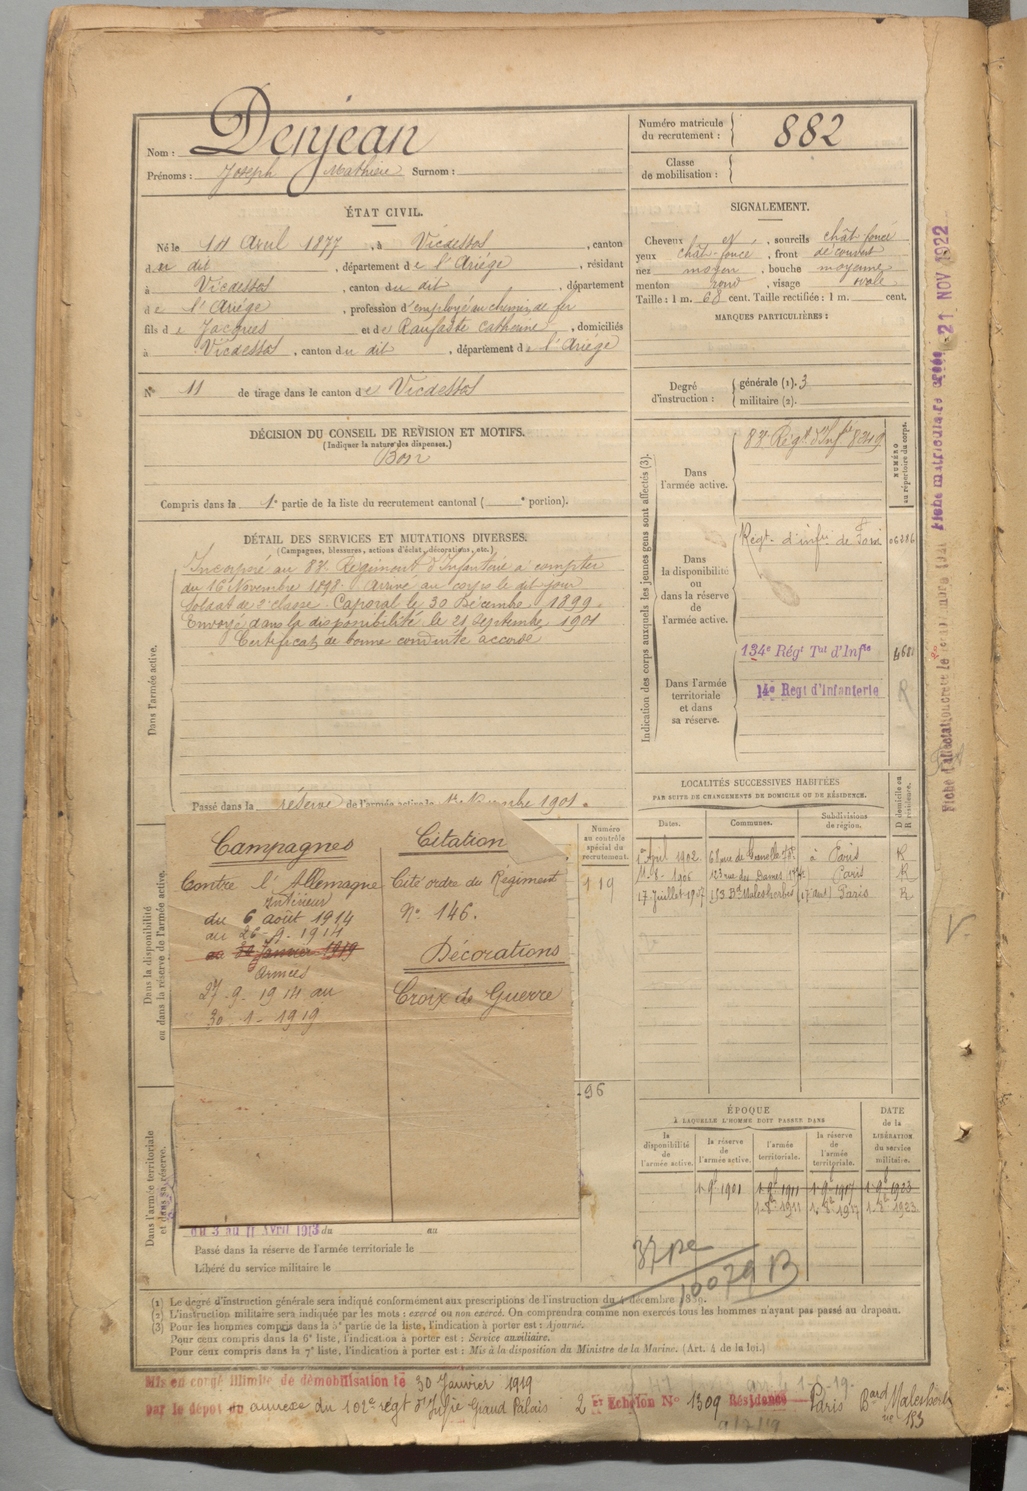 Nom : Denjean
Prénoms : Joseph Mathieu Surnom :
Numéro matricule
du recrutement : 882
Classe
de mobilisation :
ÉTAT CIVIL.
Né le 14 Avril 1877, à Vicdessos, canton
du dit, département de l'Ariége, résidant
à Vicdessos, canton du dit, département
de l'Ariége, profession d'employé au chemin de fer
fils de Jacques et de Raufaste Catherine, domiciliés
à Vicdessos, canton du dit, département de l'Ariége
N° 11 de tirage dans le canton de Vicdessos
DÉCISION DU CONSEIL DE REVISION ET MOTIFS.
(Indiquer la nature des dispenses.)
Bon
Compris dans la 1e partie de la liste du recrutement cantonal ( e portion).
SIGNALEMENT.
Cheveux et, sourcils chât foncé
yeux chât-foncé, front découvert
nez moyen, bouche moyenne
menton rond, visage ovale
Taille : 1 m. 68 cent. Taille rectifiée : 1 m. cent.
MARQUES PARTICULIÈRES :
Degré
d'instruction :
générale (1). 3
militaire (2).
DÉTAIL DES SERVICES ET MUTATIONS DIVERSES.
(Campagnes, blessures, actions d'éclat, décorations, etc.)
Dans l'armée active.
Incorporé au 83e Régiment d'Infanterie à compter
du 16 Novembre 1898. Arrivé au corps le dit jour
Soldat de 2e classe. Caporal le 30 Décembre 1899.
Envoyé dans la disponibilité le 21 Septembre 1901
Certificat de bonne conduite accordé
Passé dans la réserve de l'armée active le 1er Novembre 1901.
Indication des corps auxquels les jeunes gens sont affectés (3).
NUMÉRO
au répertoire du corps.
Dans
l'armée active.
83e Régt d'Infie 8349
Dans
la disponibilité
ou
dans la réserve
de
l'armée active.
Régt d'infie de Foix
Dans l'armée
territoriale
et dans
sa réserve.
134e Régt Tal d'Infie
14e Regt d'Infanterie R
LOCALITÉS SUCCESSIVES HABITÉES
PAR SUITE DE CHANGEMENTS DE DOMICILE OU DE RÉSIDENCE.
Dates. Communes. Subdivisions
de région. D domicile ou
R résidence.
Avril 1902 68 rue de Grenelle à Paris R
11-8-1906 rue des Dames Paris R
17 Juillet 1907 153 Bd Malesherbes (17e arrt) Paris R
Dans la disponibilité
ou dans la réserve de l'armée active.
Numéro
au contrôle
spécial du
recrutement.
119
96
Campagnes
Contre l'Allemagne
Intérieur
du 6 août 1914
au 26-9-1914
au 30 Janvier 1919
Armées
27-9-1914 au
30-1-1919
Citation
Cité ordre du Régiment
N° 146.
Décorations
Croix de Guerre
Dans l'armée territoriale
et dans sa réserve.
du 3 au 11 Avril 1913 du au
Passé dans la réserve de l'armée territoriale le
Libéré du service militaire le
ÉPOQUE
À LAQUELLE L'HOMME DOIT PASSER DANS
DATE
de la
LIBÉRATION
du service
militaire.
la
disponibilité
de
l'armée active.
la réserve
de
l'armée active.
l'armée
territoriale.
la réserve
de
l'armée
territoriale.
1-9bre 1901 1-9bre 1911 1-9bre 1917 1-9bre 1923
1-8bre 1911 1-8bre 1917 1-8bre 1923
10079 B
(1) Le degré d'instruction générale sera indiqué conformément aux prescriptions de l'instruction du 4 décembre 1889.
(2) L'instruction militaire sera indiquée par les mots : exercé ou non exercé. On comprendra comme non exercés tous les hommes n'ayant pas passé au drapeau.
(3) Pour les hommes compris dans la 5e partie de la liste, l'indication à porter est : Ajourné.
Pour ceux compris dans la 6e liste, l'indication à porter est : Service auxiliaire.
Pour ceux compris dans la 7e liste, l'indication à porter est : Mis à la disposition du Ministre de la Marine. (Art. 4 de la loi.)
Mis en congé illimité de démobilisation le 30 Janvier 1919
par le dépôt du annexe du 102e regt d'Infie Grand Palais
2 Er Echelon N° 1309 Résidence Paris Bard Malesherbes
153
Fiche matriculaire créée 21 NOV 1922
V.